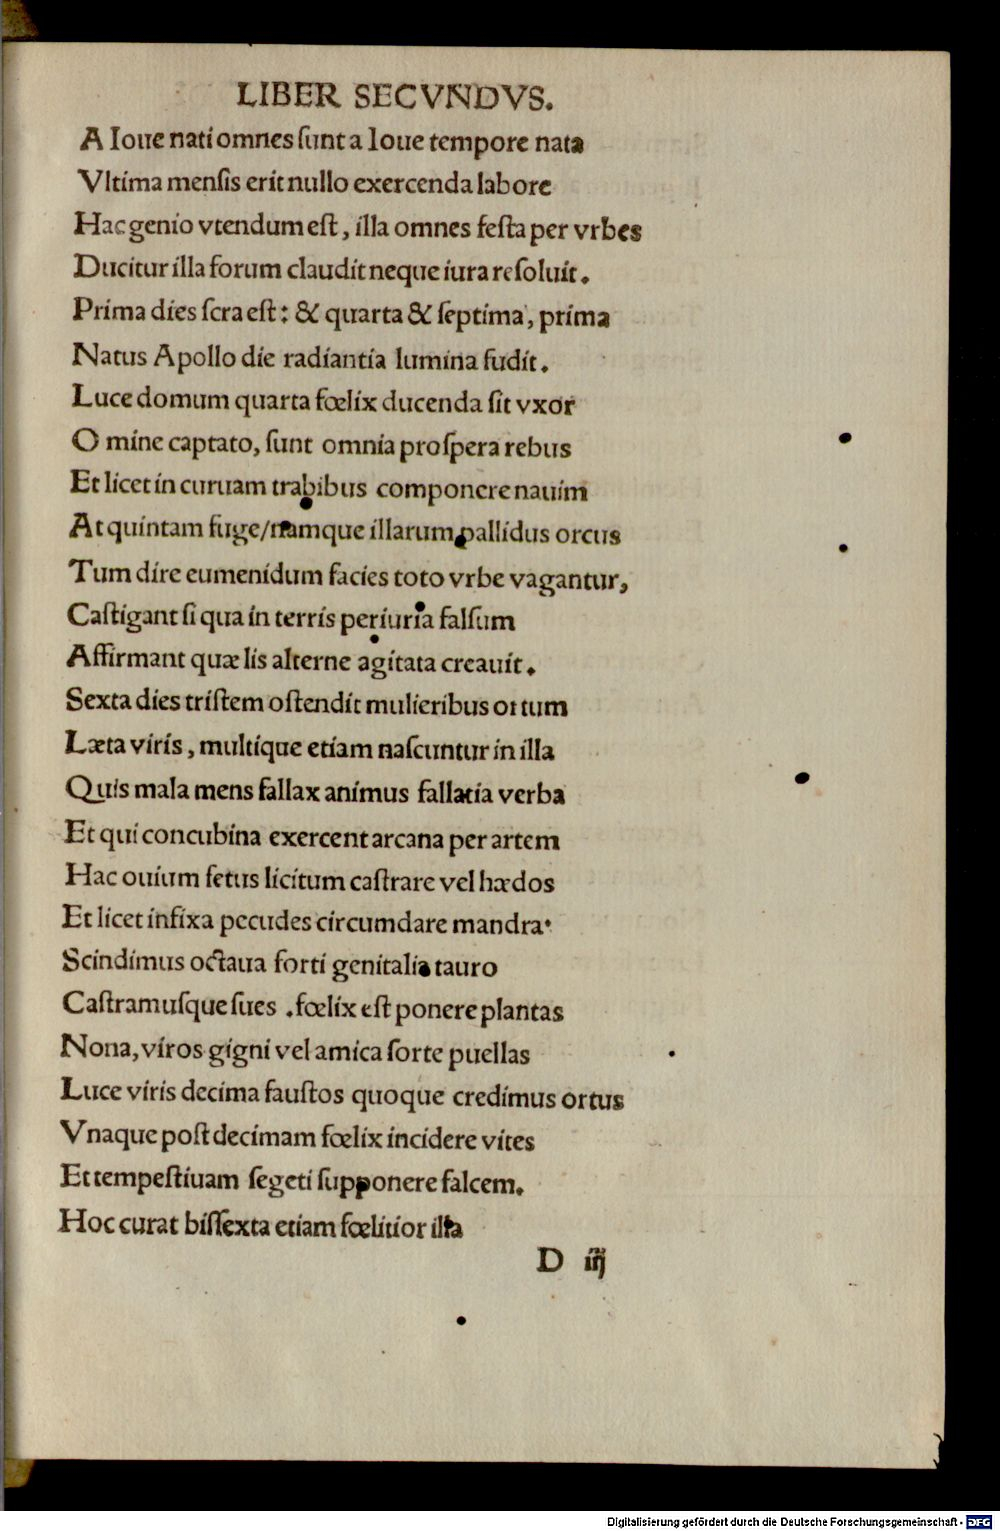 LIBER SECVNDVS.
A Ioue nati omnes ſunt a Ioue tempore nata
Vltima menſis erit nullo exercenda labore
Hac genio vtendum eſt, illa omnes feſta per vrbes
Ducitur illa forum claudit neque iura reſoluit.
Prima dies ſcra eſt: & quarta & ſeptima, prima
Natus Apollo die radiantia lumina fudit.
Luce domum quarta fœlix ducenda ſit vxor
O mine captato, ſunt omnia proſpera rebus
Et licet in curuam trabibus componere nauim
At quintam fuge/namque illarum pallidus orcus
Tum dire eumenidum facies toto vrbe vagantur,
Caſtigant ſi qua in terris periuria falſum
Affirmant quæ lis alterne agitata creauit.
Sexta dies triſtem oſtendit mulieribus ortum
Læta viris, multique etiam naſcuntur in illa
Quis mala mens fallax animus fallacia verba
Et qui concubina exercent arcana per artem
Hac ouium fetus licitum caſtrare vel hædos
Et licet infixa pecudes circumdare mandra·
Scindimus octaua forti genitalia tauro
Caſtramuſque ſues .fœlix eſt ponere plantas
Nona, viros gigni vel amica ſorte puellas
Luce viris decima fauſtos quoque credimus ortus
Vnaque poſt decimam fœlix incidere vites
Et tempeſtiuam ſegeti ſupponere falcem.
Hoc curat biſſexta etiam fœlitior illa
D iij
Digitalisierung gefördert durch die Deutsche Forschungsgemeinschaft - DFG